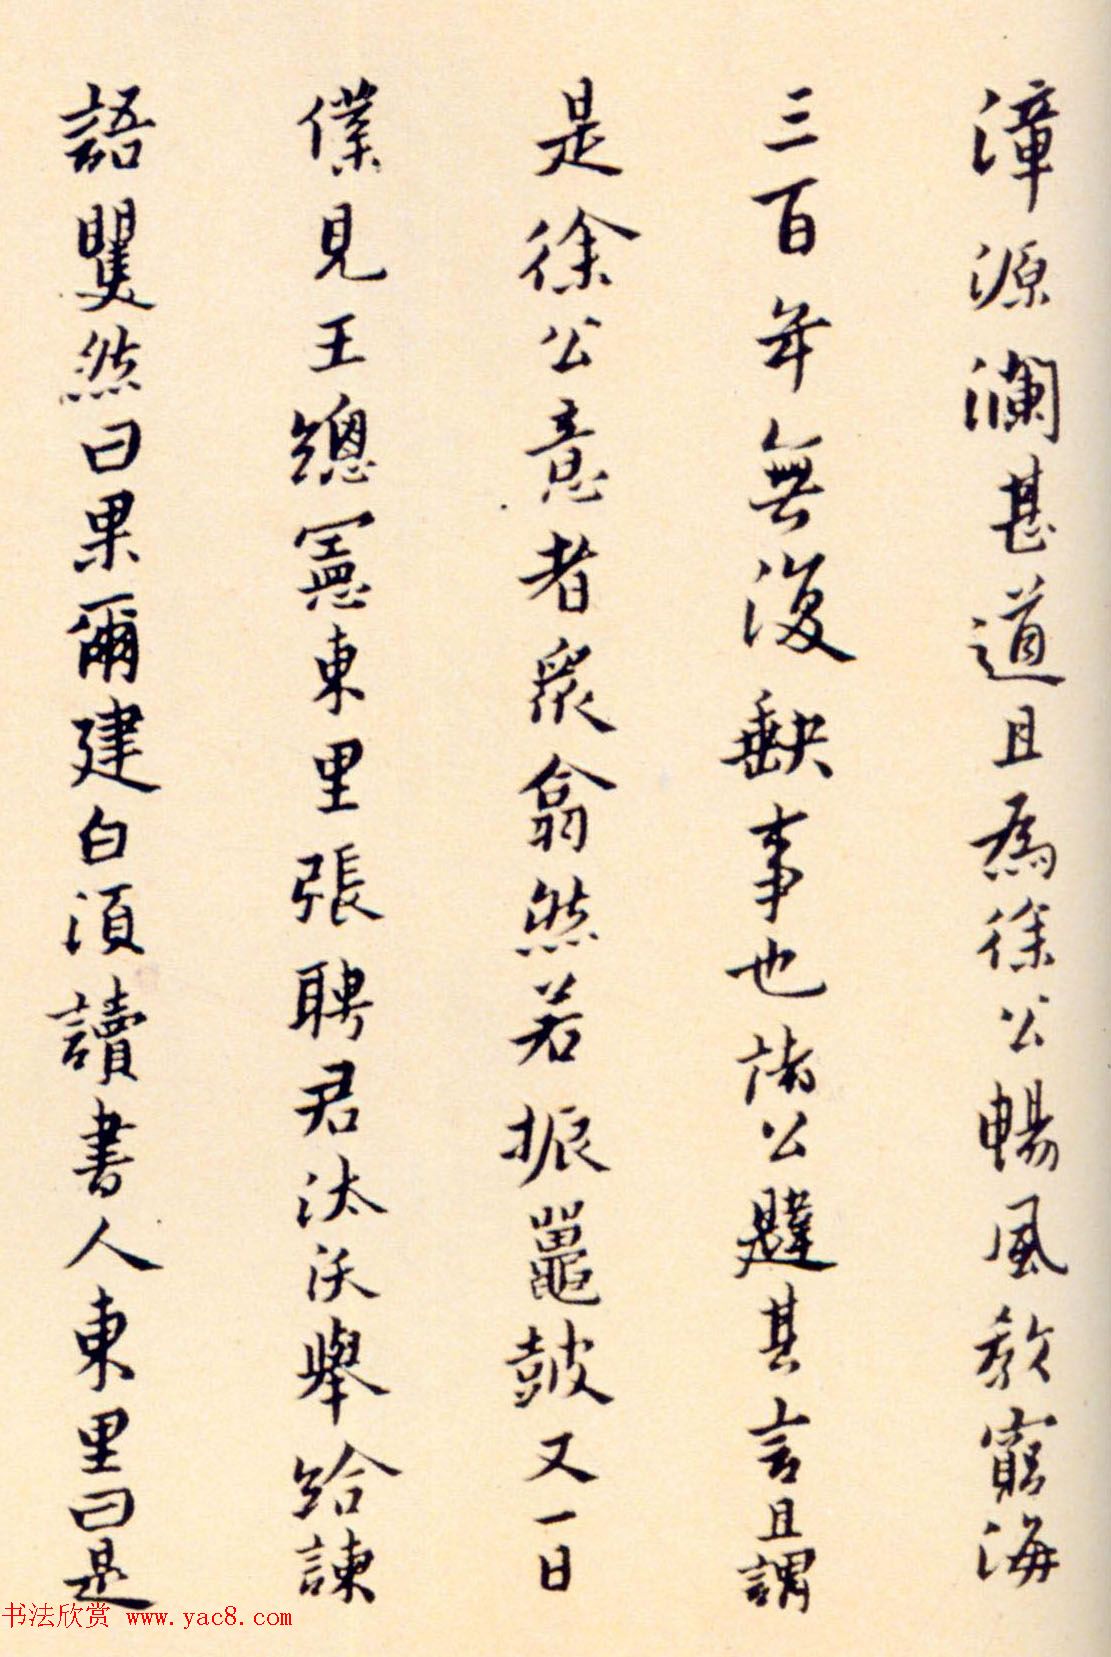 漳源瀾甚道且為徐公暢風教窮海
三百年無復缺事也諸公韙其言且謂
是徐公意者眾翕然若振鼉鼓又一日
僕見王總憲東里張聘君汰沃舉給諫
語瞿然曰果爾建白須讀書人東里曰是
书法欣赏 www.yac8.com